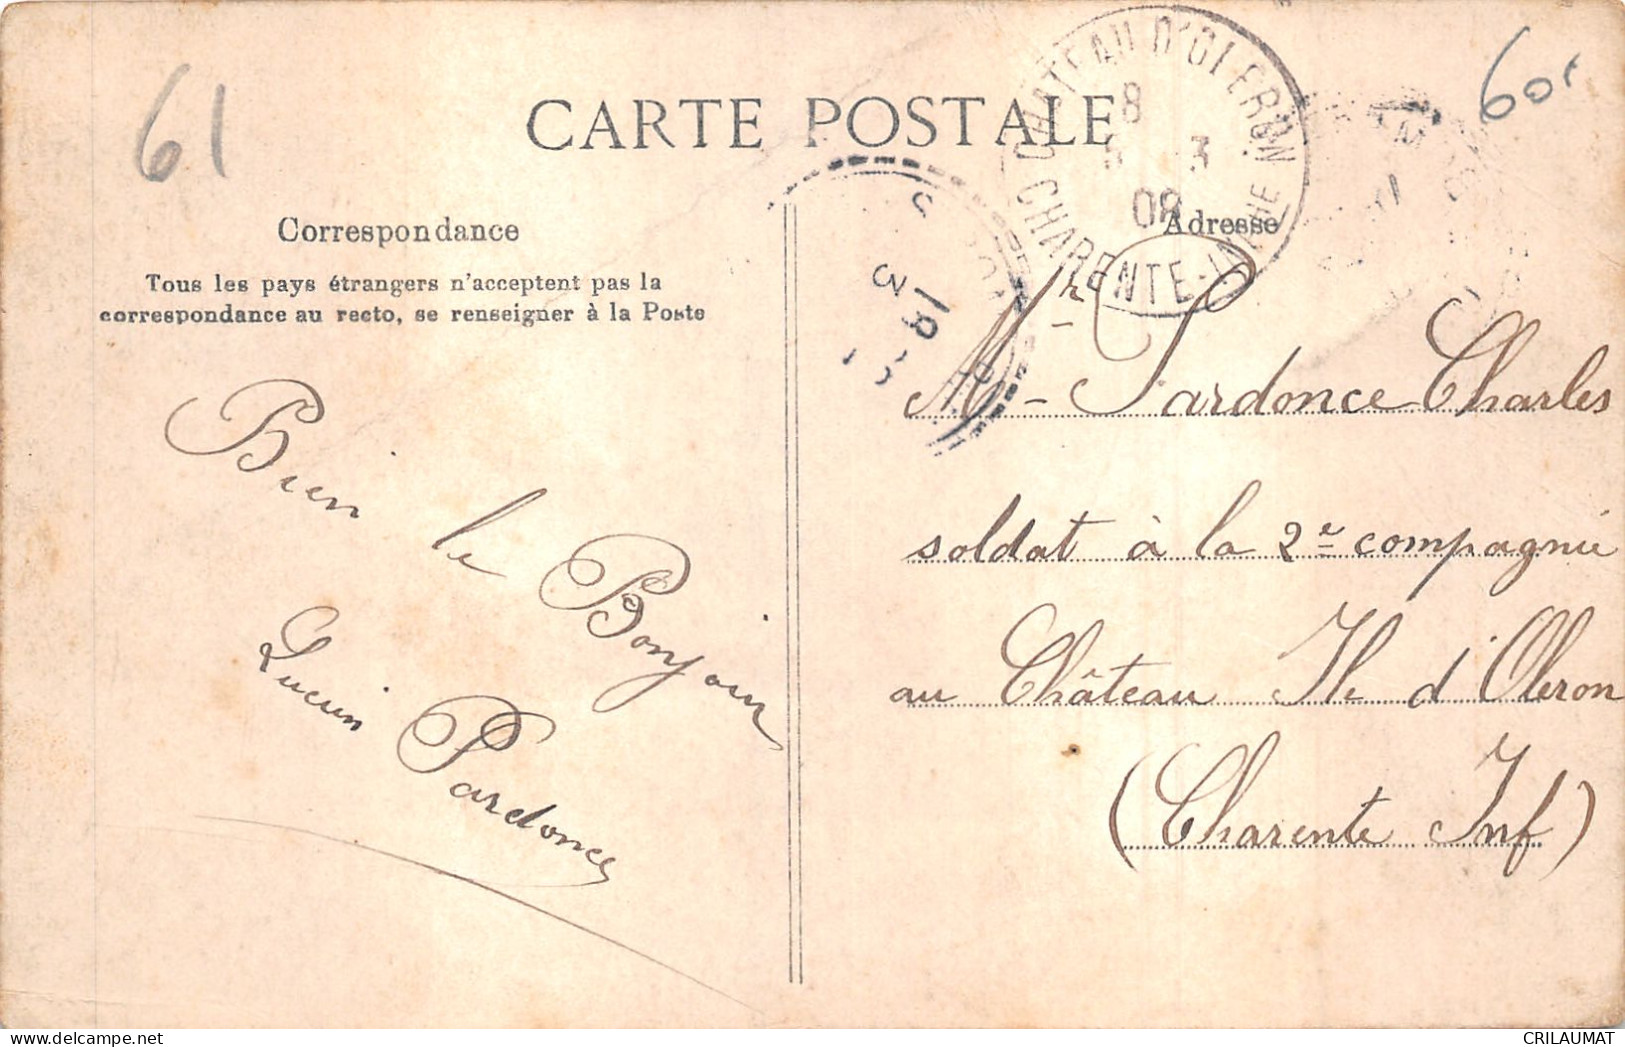 61
60r
CARTE POSTALE
CHATEAU D'OLERON
8
3
08
CHARENTE-INF
Correspondance
Adresse
Tous les pays étrangers n'acceptent pas la
correspondance au recto, se renseigner à la Poste
Bien le Bonjour
Lucien Pardonce
Mr - Pardonce Charles
soldat à la 2e compagnie
au Château Ile d'Oleron
(Charente Inf)
CRILAUMAT